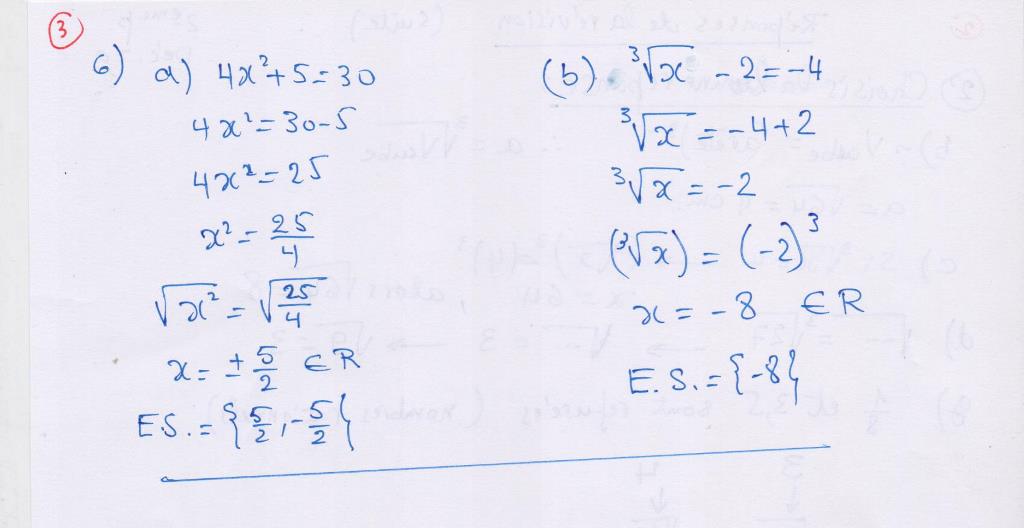 3
6) a) 4x²+5=30
4x²=30-5
4x²=25
x²=25/4
√x²=√25/4
x=±5/2 ∈R
E.S.={5/2,-5/2}
(b) ³√x -2=-4
³√x =-4+2
³√x =-2
(³√x)=(-2)³
x=-8 ∈R
E.S.={-8}